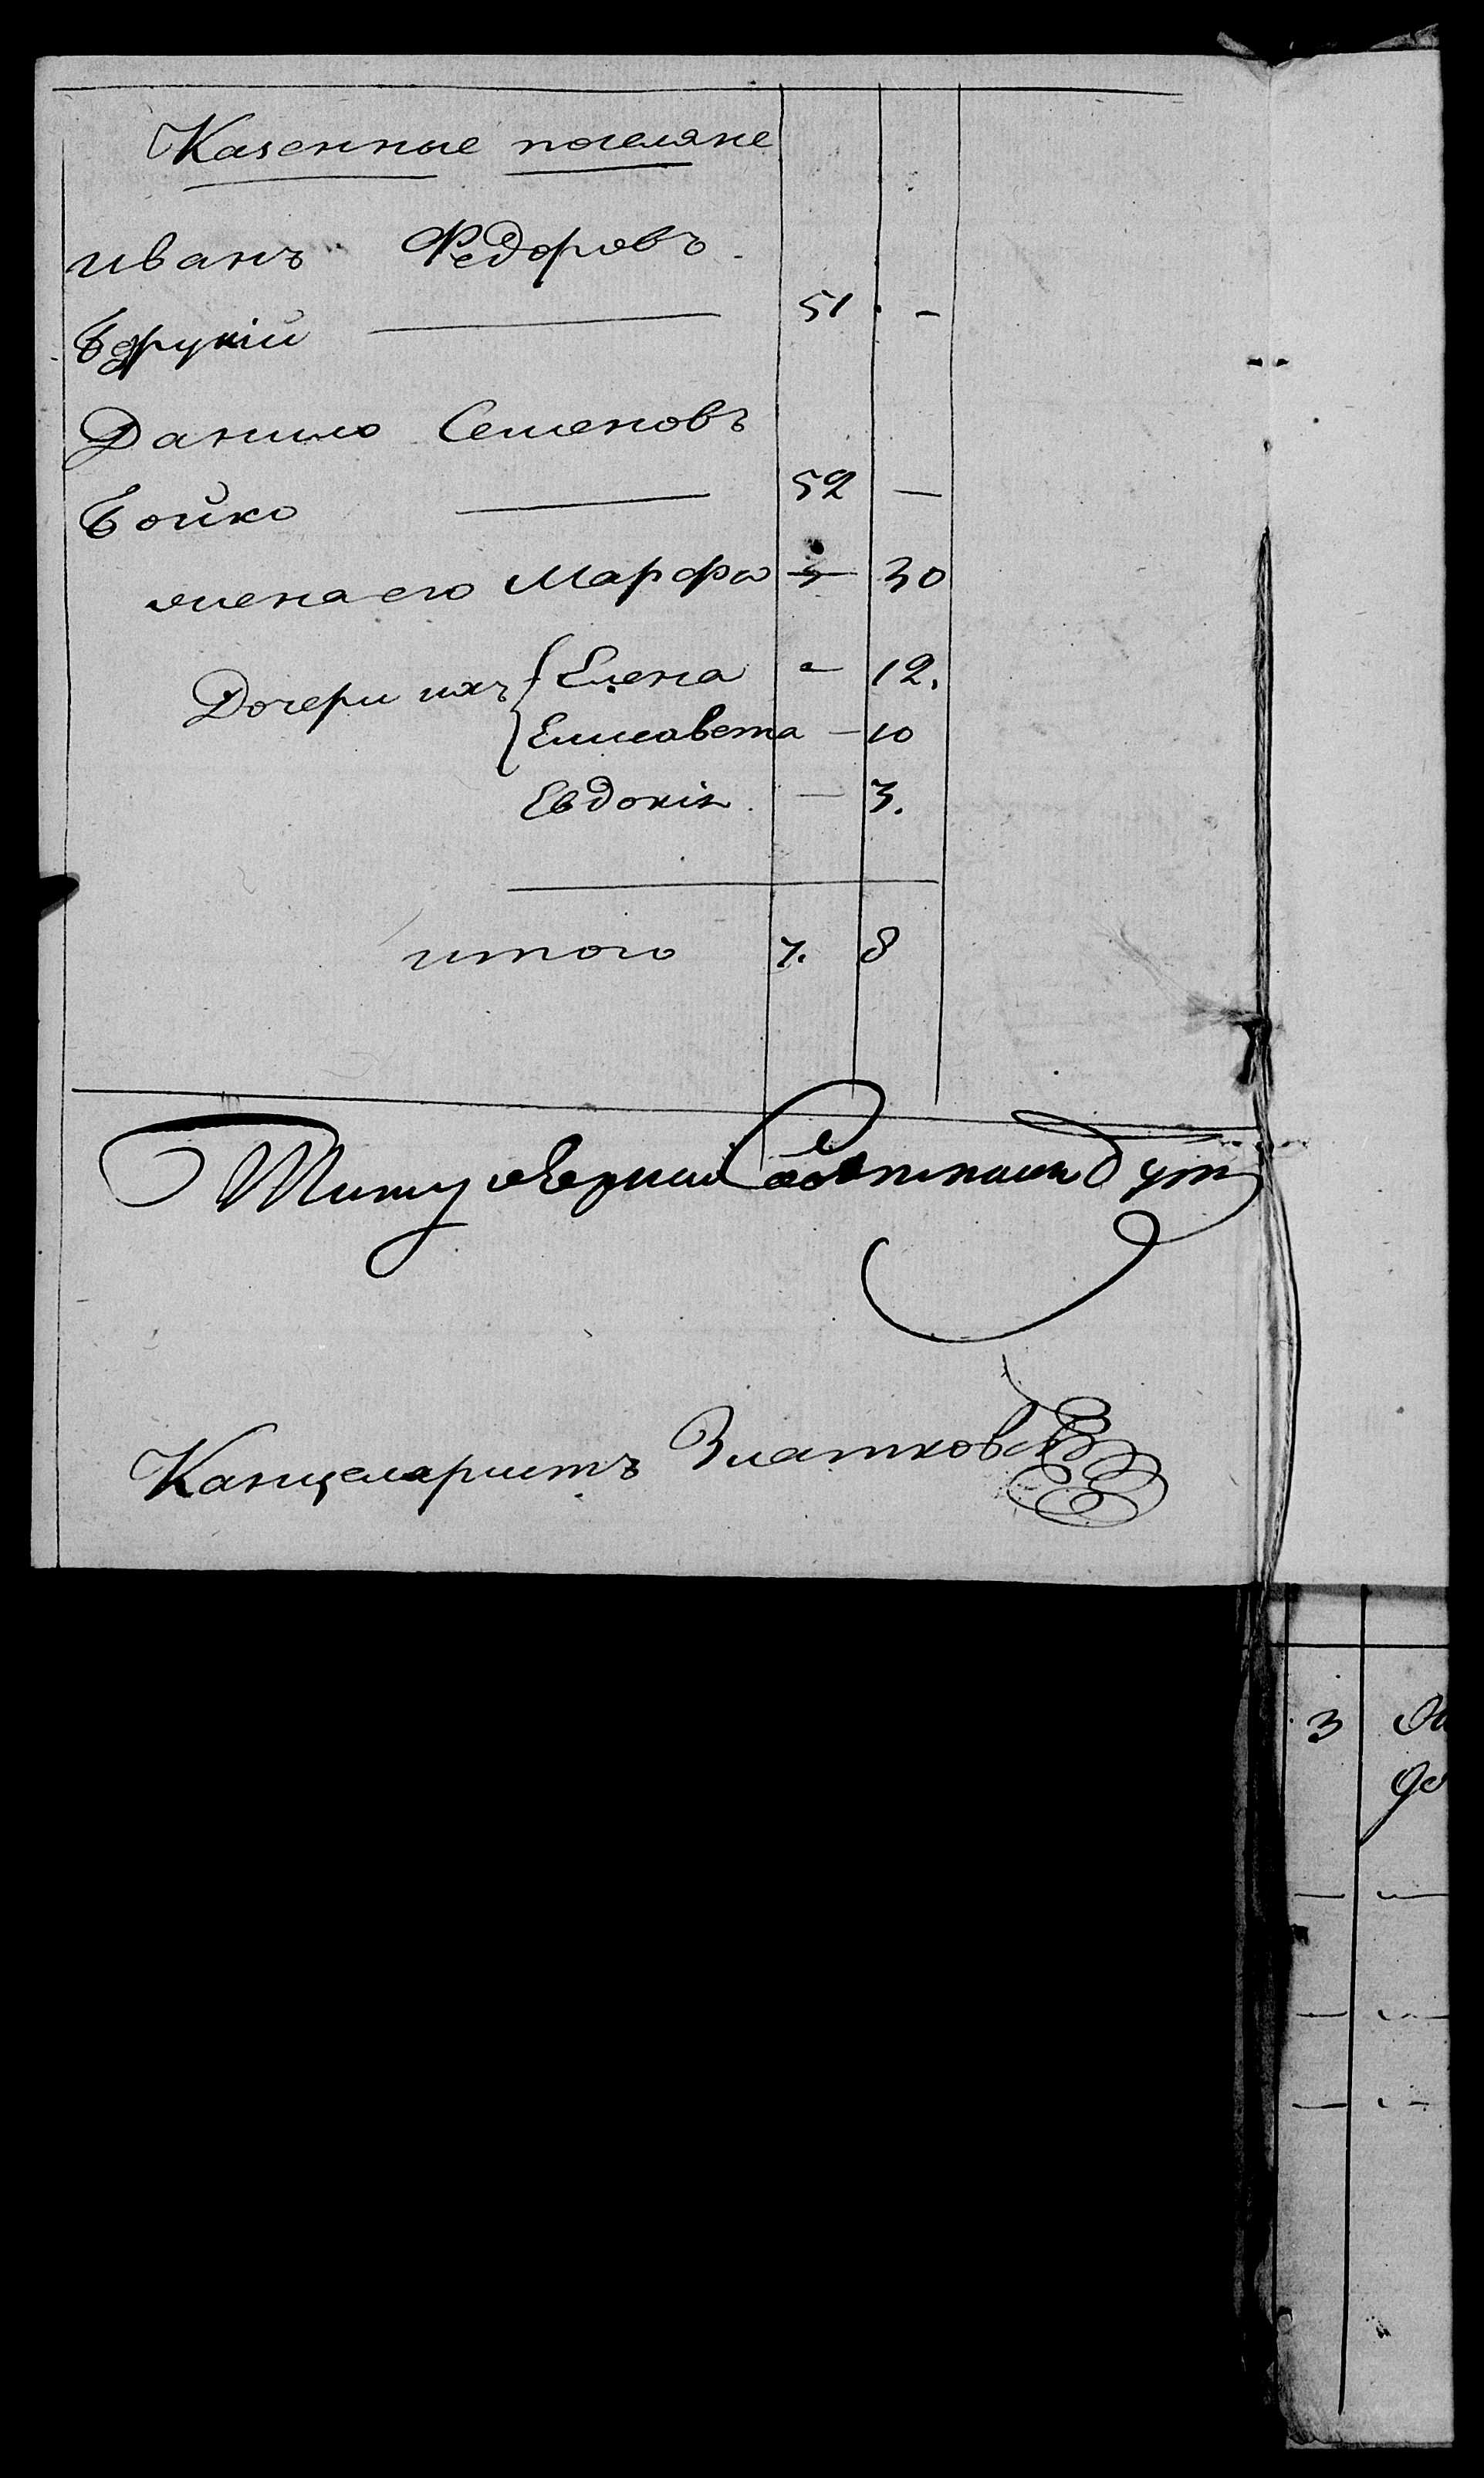 Казенные поселяне
Иванъ Федоровъ.
51 . –
Данило Семеновъ
Бойко — 52 —
жена его Марфа — 30
Дочери ихъ { Елена – 12.
Елисавета – 10
Евдокія. — 3.
итого 7. 8
Титулярный Советникъ
Канцеляристъ Златковск
3